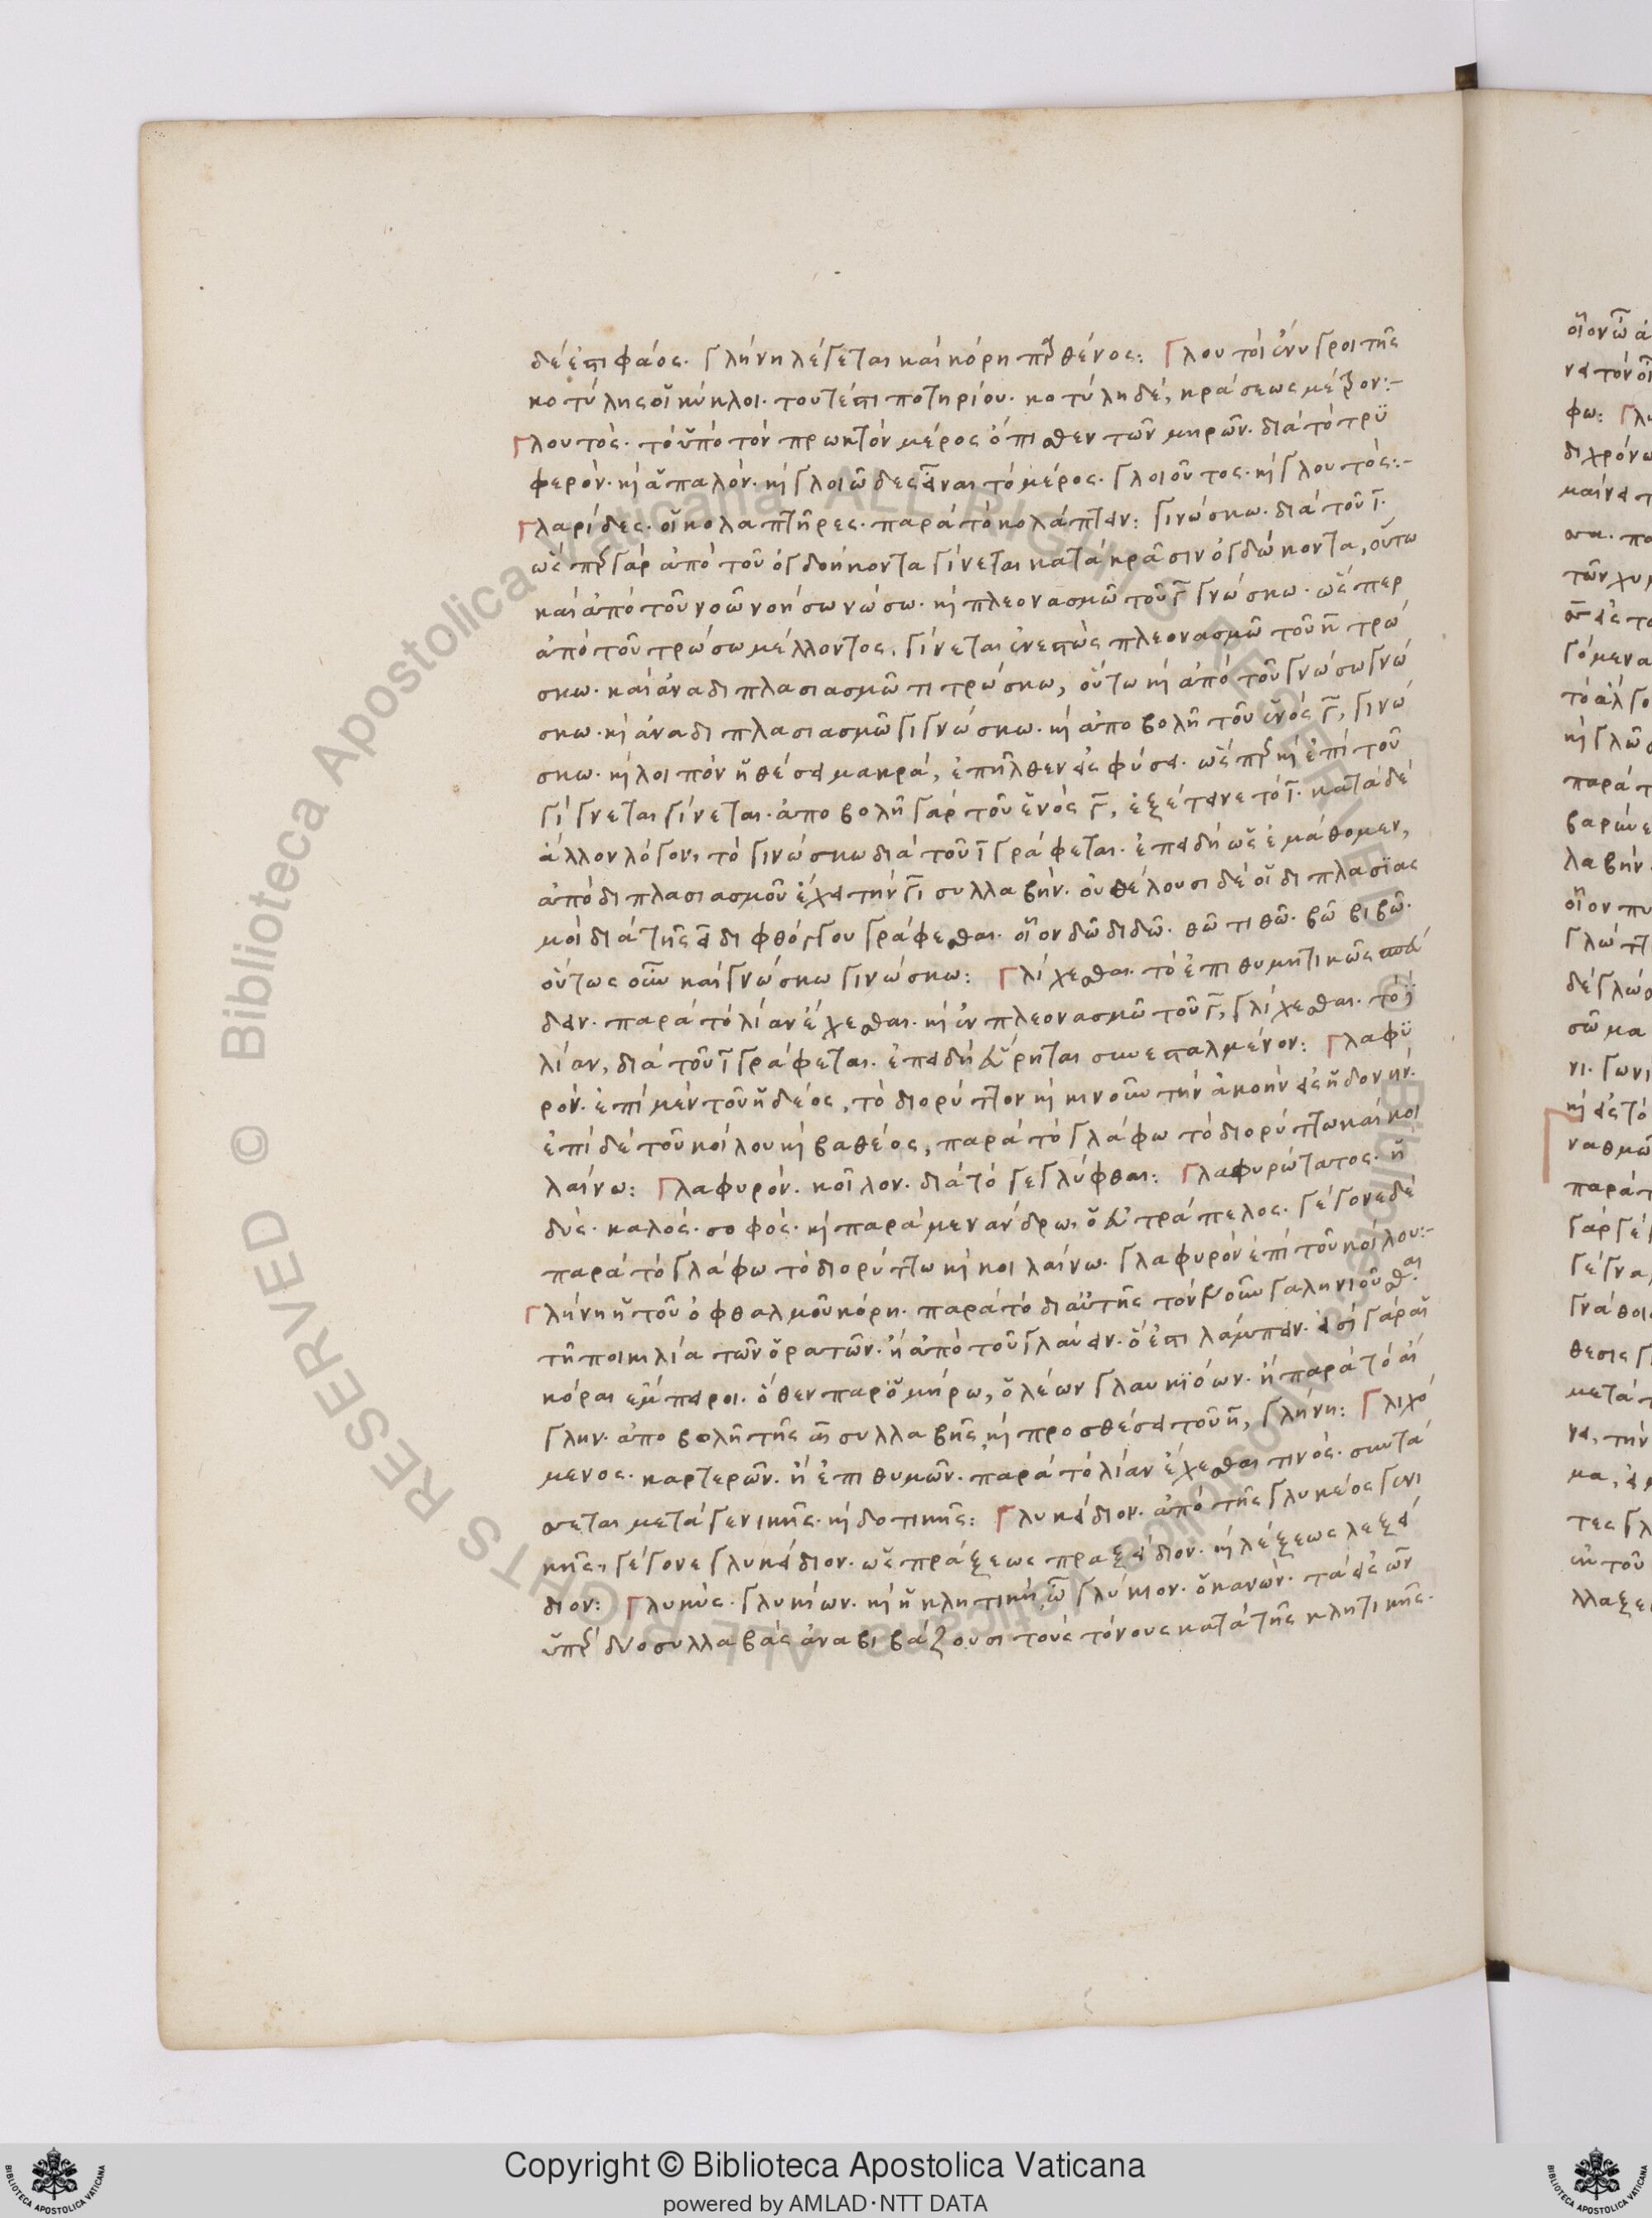 δέ ἐστι φάος· γλήνη λέγεται καὶ κόρη πρθένος: Γλουτοὶ ἔνυγροι τῆς
κοτύλης οἱ κύκλοι· τουτέστι ποτηρίου· κοτύλη δὲ, κράσεως μέτρον:-
Γλουτὸς· τὸ ὑπὸ τὸν πρωκτὸν μέρος ὄπισθεν τῶν μηρῶν· διὰ τὸ τρυ
φερὸν· κὶ ἁπαλὸν· κὶ γλοιῶδες εἶναι τὸ μέρος· γλοιοῦτος· κὶ γλουτὸς:-
Γλαρίδες· οἱ κολαπτῆρες· παρὰ τὸ κολάπτειν: γινώσκω· διὰ τοῦ ι·
ὥσπερ γὰρ ἀπὸ τοῦ ὀγδοήκοντα γίνεται κατὰ κρᾶσιν ὀγδώκοντα, οὕτω
καὶ ἀπὸ τοῦ νοῶ νοήσω νώσω· κὶ πλεονασμῶ τοῦ γ γνώσκω· ὥσπερ
ἀπὸ τοῦ τρώσω μέλλοντος, γίνεται ἐνεστὼς πλεονασμῶ τοῦ κ τρώ
σκω· καὶ ἀναδιπλασιασμῶ τιτρώσκω, οὕτω κὶ ἀπὸ τοῦ γνώσω γνώ
σκω· κὶ ἀναδιπλασιασμῶ γιγνώσκω· κὶ ἀποβολῆ τοῦ ἑνὸς γ, γινώ
σκω· κὶ λοιπὸν ἡ θέσει μακρά, ἐπῆλθεν εἰς φύσει· ὥσπερ κὶ ἐπὶ τοῦ
γίγνεται γίνεται· ἀποβολῆ γὰρ τοῦ ἑνὸς γ, ἐξέτεινε τὸ ι· κατὰ δὲ
ἄλλον λόγον, τὸ γινώσκω διὰ τοῦ ι γράφεται· ἐπειδὴ ὡς ἐμάθομεν,
ἀπὸ διπλασιασμοῦ ἔχει τὴν γι συλλαβήν· οὐ θέλουσι δὲ οἱ διπλασιας
μοὶ διὰ τῆς ει διφθόγγου γράφεσθαι· οἷον δῶ διδῶ· θῶ τιθῶ· βῶ βιβῶ·
οὕτως οὖν καὶ γνώσκω γινώσκω: Γλίχεσθαι· τὸ ἐπιθυμητικῶς σπεύ
δειν· παρὰ τὸ λίαν ἔχεσθαι· κὶ ἐν πλεονασμῶ τοῦ γ, γλίχεσθαι· τὸ γ
λίαν, διὰ τοῦ ι γράφεται· ἐπειδὴ εὕρηται συνεσταλμένον: Γλαφυ
ρόν· ἐπὶ μὲν τοῦ ἡδέος, τὸ διορύττον κὶ κινοῦν τὴν ἀκοὴν εἰς ἡδονήν·
ἐπὶ δὲ τοῦ κοίλου κὶ βαθέος, παρὰ τὸ γλάφω τὸ διορύττω καὶ κοι
λαίνω: Γλαφυρόν· κοῖλον· διὰ τὸ γεγλύφθαι: Γλαφυρώτατος· ἡ
δύς· καλός· σοφός· κὶ παρὰ μενάνδρω, ὁ εὐτράπελος· γέγονε δὲ
παρὰ τὸ γλάφω τὸ διορύττω κὶ κοιλαίνω· γλαφυρὸν ἐπὶ τοῦ κοίλου:-
Γλήνη ἡ τοῦ ὀφθαλμοῦ κόρη· παρὰ τὸ δι αὐτῆς τὸν νοῦν γαληνιοῦσθαι
τῆ ποικιλία τῶν ὁρατῶν· ἢ ἀπὸ τοῦ γλαύειν· ὅ ἐστι λάμπειν· εἰσὶ γὰρ αἱ
κόραι ἔμπειροι· ὅθεν παρ ὁμήρω, ὁ λέων γλαυκιόων· ἢ παρὰ τὸ αἴ
γλην· ἀποβολῆ τῆς αι συλλαβῆς, κὶ προσθέσει τοῦ η, γλήνη: Γλιχό
μενος· καρτερῶν· ἢ ἐπιθυμῶν· παρὰ τὸ λίαν ἔχεσθαι τινός· συντά
σσεται μετὰ γενικῆς· κὶ δοτικῆς: Γλυκείδιον· ἀπὸ τῆς γλυκέος γενι
κῆς, γέγονε γλυκείδιον· ὡς πράξεως πραξείδιον· κὶ λέξεως λεξεί
διον: Γλυκύς· γλυκίων· κὶ ἡ κλητικὴ, ὦ γλύκιον· ὁ κανών· τὰ εἰς ων
ὑπὲρ δυο συλλαβὰς ἀναβιβάζουσι τοὺς τόνους κατὰ τῆς κλητικῆς·